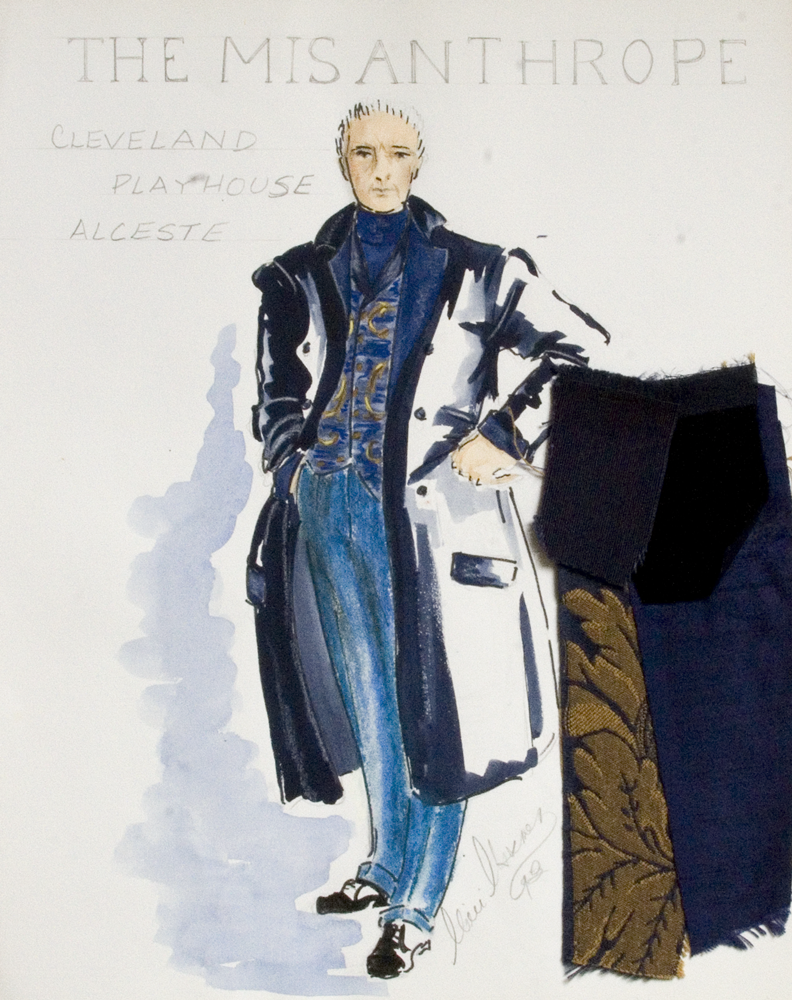 THE MISANTHROPE
CLEVELAND
PLAYHOUSE
ALCESTE